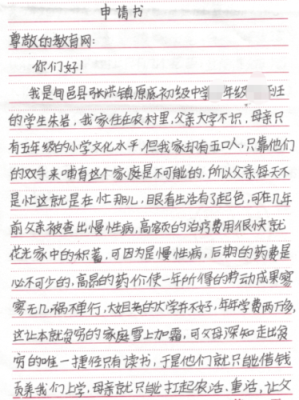 申请书
尊敬的教育网:
你们好!
我是旬邑县张洪镇原底初级中学 年级 班
的学生朱岩,我家住在农村里,父亲大字不识,母亲只
有五年级的小学文化水平,但我家却有五口人,只靠他们
的双手来哺育这个家庭是不可能的,所以父亲每天不
是忙这就是在忙那儿,眼看生活有了起色,可在几年
前父亲被查出慢性病,高额的治疗费用很快就
花光家中的积蓄,可因为是慢性病,后期的药费是
必不可少的,高昂的药价使一年所得的劳动成果寥
寥无几,祸不单行,大姐考的大学并不好,每年学费两万多,
这让本就贫穷的家庭雪上加霜,可父母深知走出贫
穷的唯一捷径只有读书,于是他们就只能借钱
供我们上学,母亲就只能扛起农活,重活,让父